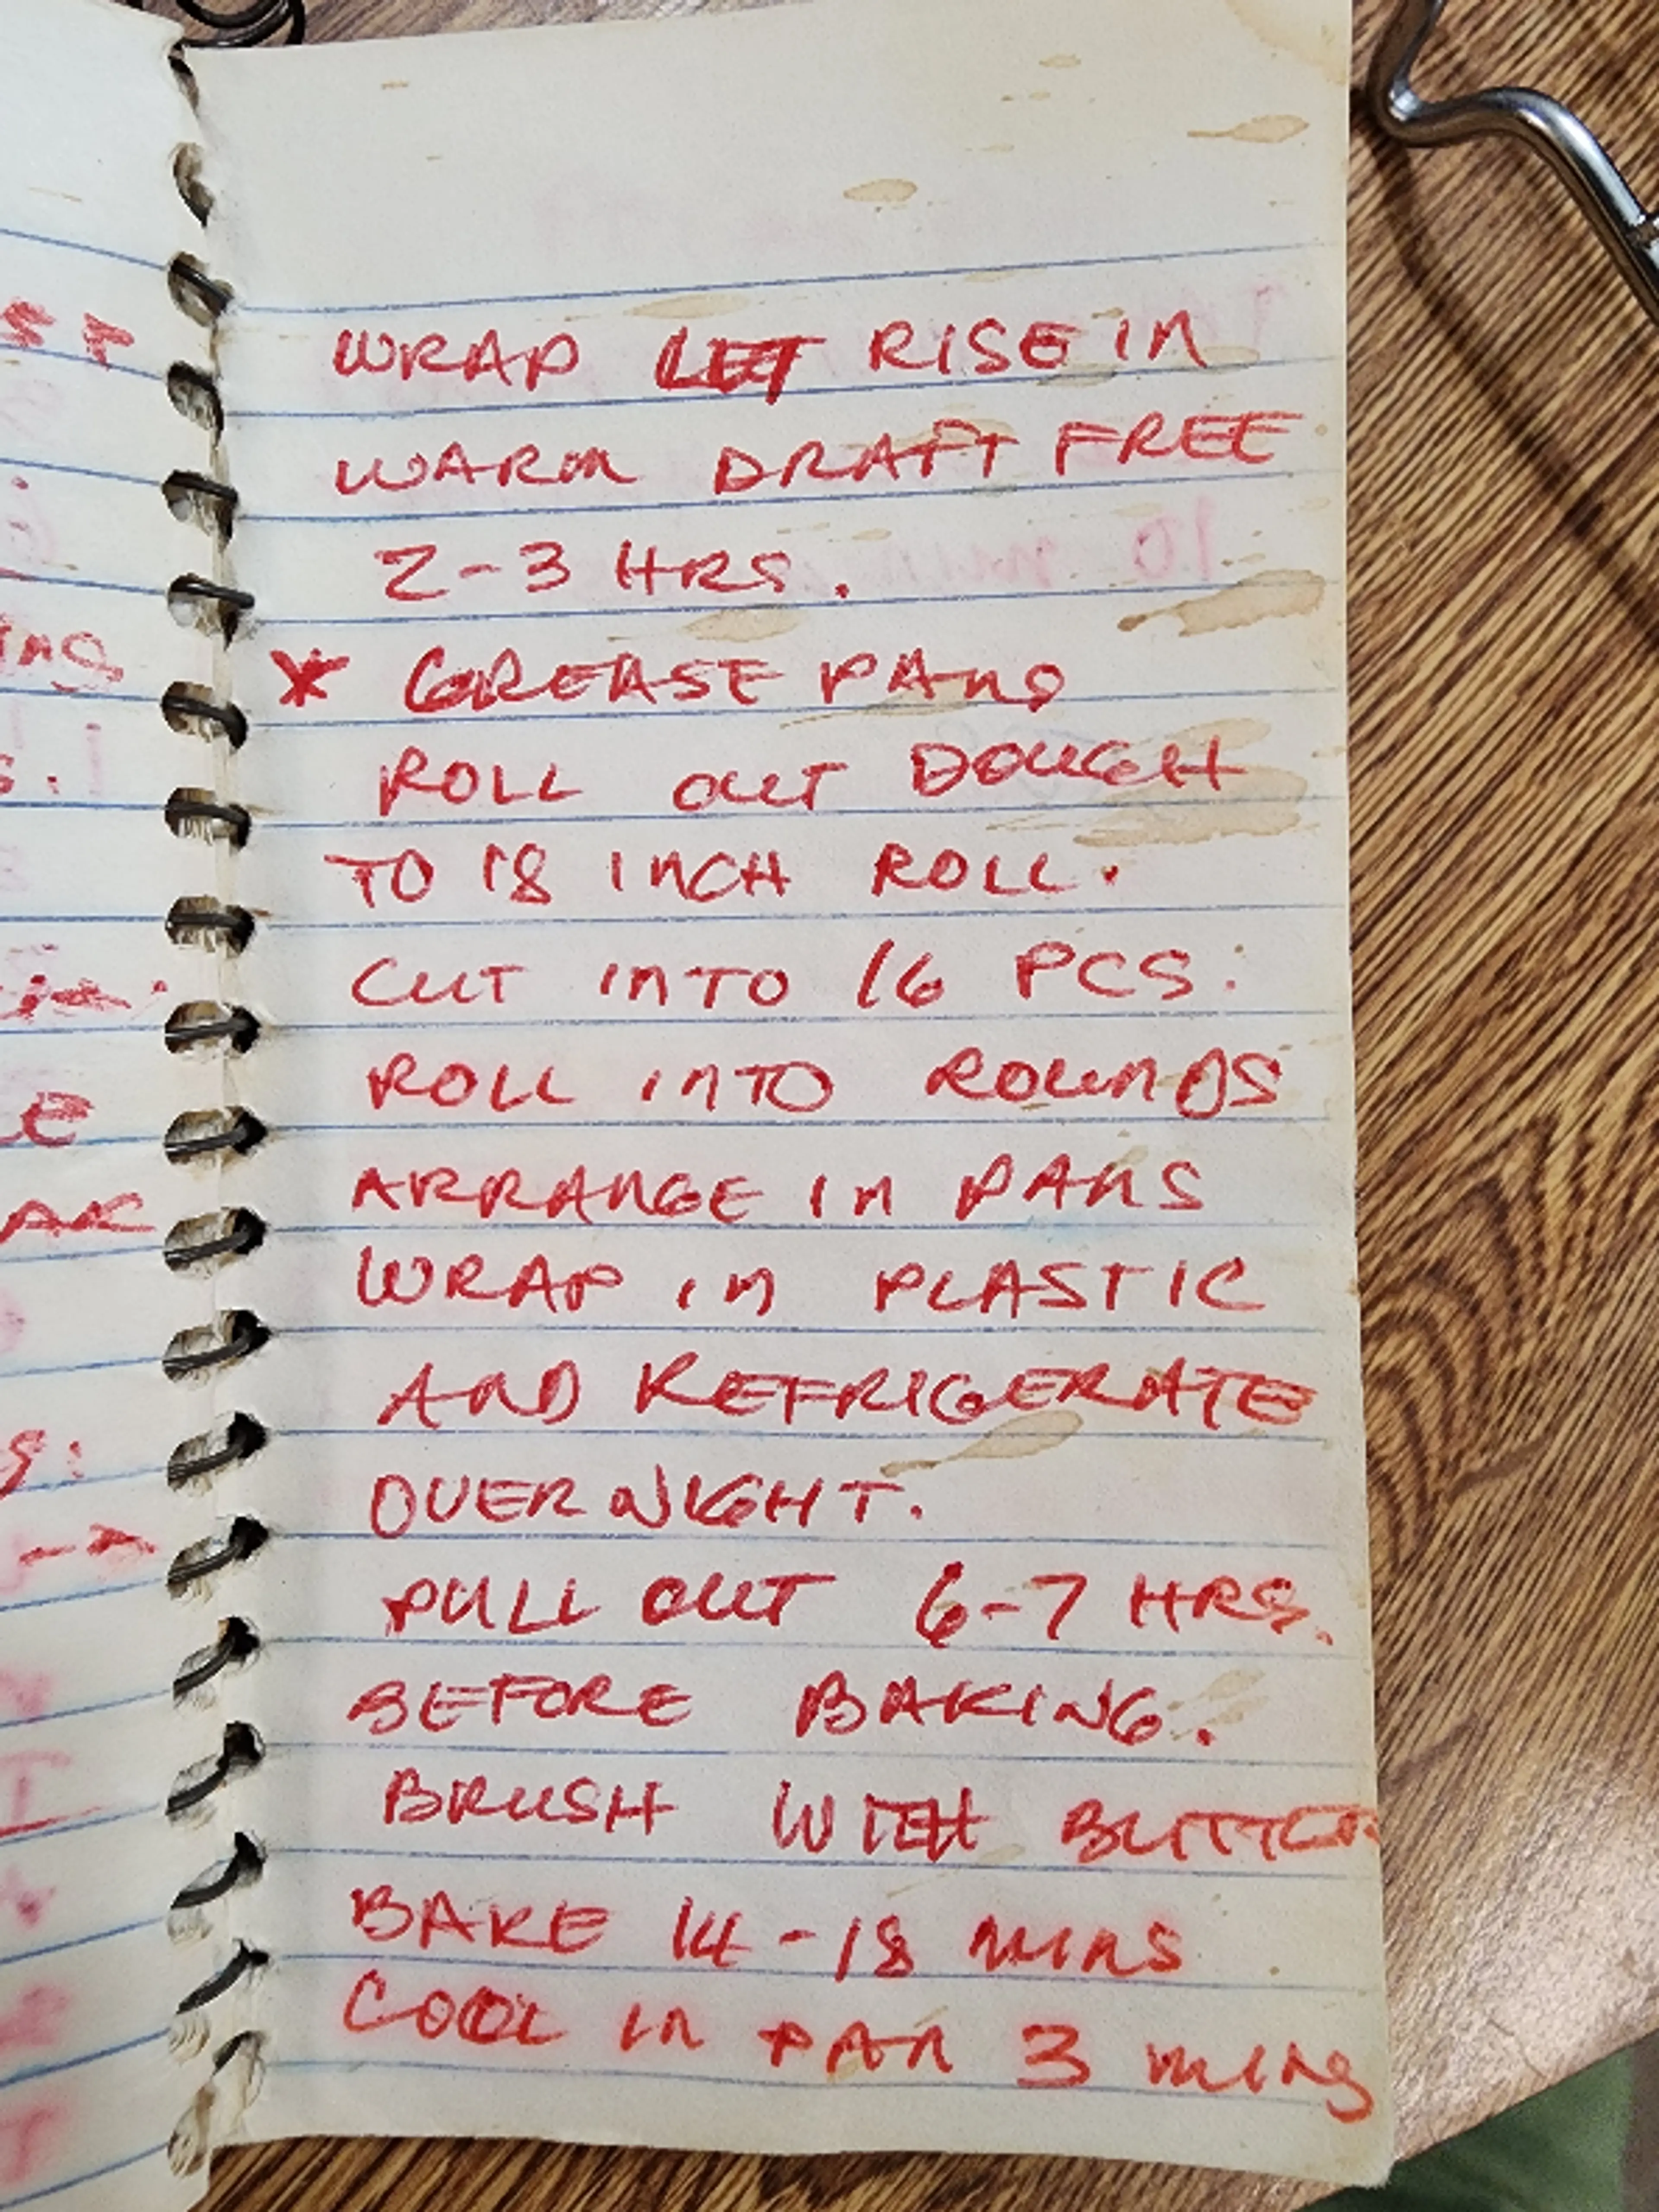 WRAP LET RISE IN
WARM DRAFT FREE
2-3 HRS.
* GREASE PANS
ROLL OUT DOUGH
TO 18 INCH ROLL.
CUT INTO 16 PCS:
ROLL INTO ROUNDS
ARRANGE IN PANS
WRAP IN PLASTIC
AND REFRIGERATE
OVERNIGHT.
PULL OUT 6-7 HRS.
BEFORE BAKING.
BRUSH WITH BUTTER
BAKE 14-18 MINS
COOL IN PAN 3 MINS